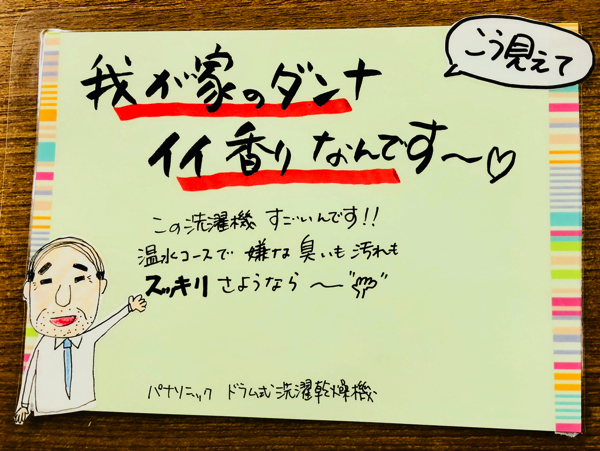 こう見えて
我が家のダンナ
イイ香りなんです〜♡
この洗濯機 すごいんです!!
温水コースで 嫌な臭いも汚れも
スッキリ さようなら〜
パナソニック ドラム式洗濯乾燥機